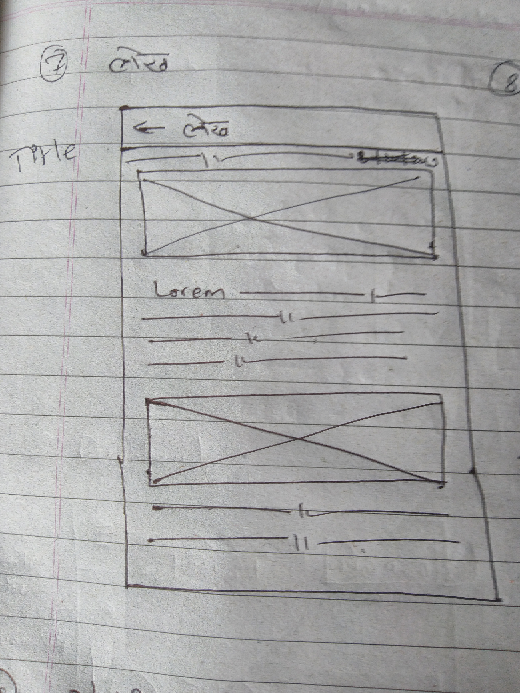 7 लेख
8
← लेख
Title
Lorem